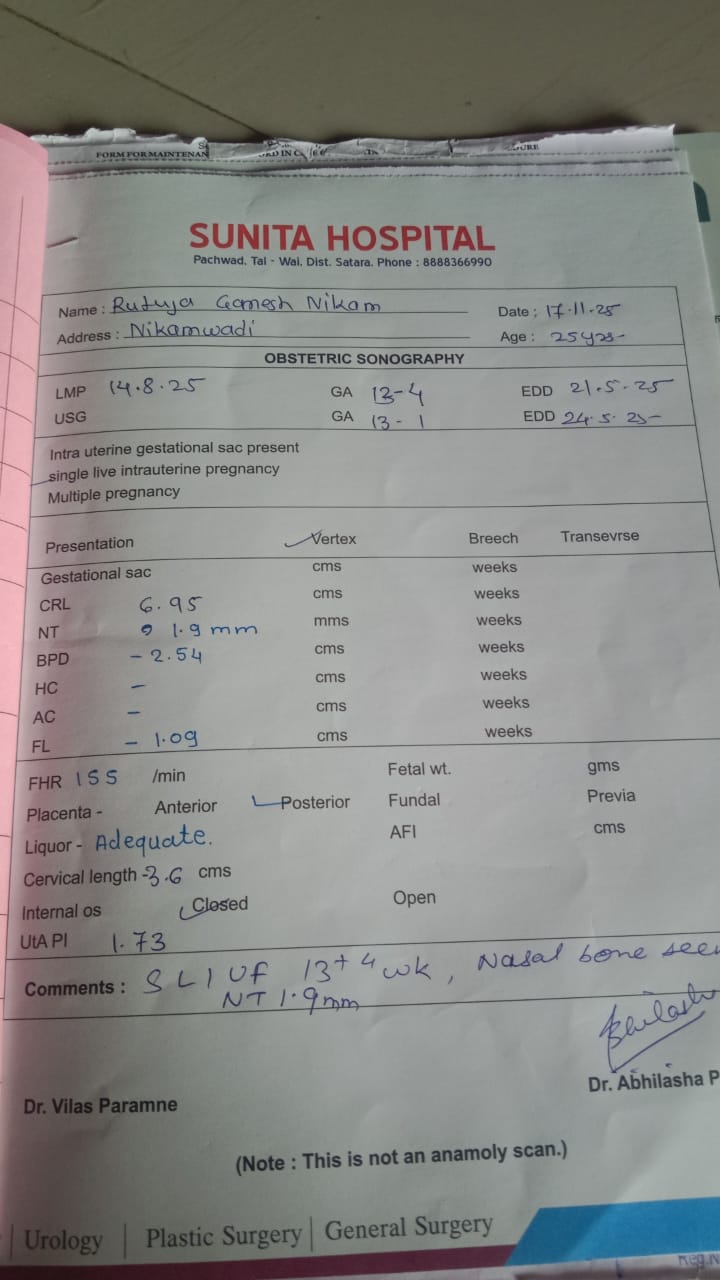 FORM FOR MAINTENAN
SUNITA HOSPITAL
Pachwad. Tal - Wai. Dist. Satara. Phone : 8888366990
Name : Rutuja Ganesh Nikam Date : 17.11.25
Address : Nikamwadi Age : 25yrs
OBSTETRIC SONOGRAPHY
LMP 14.8.25 GA 13-4 EDD 21.5.25
USG GA 13-1 EDD 24.5.25
Intra uterine gestational sac present
single live intrauterine pregnancy
Multiple pregnancy
Presentation Vertex Breech Transevrse
Gestational sac cms weeks
CRL 6.95 cms weeks
NT 1.9 mm mms weeks
BPD - 2.54 cms weeks
HC - cms weeks
AC - cms weeks
FL - 1.09 cms weeks
FHR 155 /min Fetal wt. gms
Placenta - Anterior Posterior Fundal Previa
Liquor - Adequate. AFI cms
Cervical length - 3.6 cms
Internal os Closed Open
UtA PI 1.73
Comments : SLIUF 13+4 wk, Nasal bone seen
NT 1.9mm
Dr. Vilas Paramne Dr. Abhilasha P
(Note : This is not an anamoly scan.)
Urology | Plastic Surgery | General Surgery